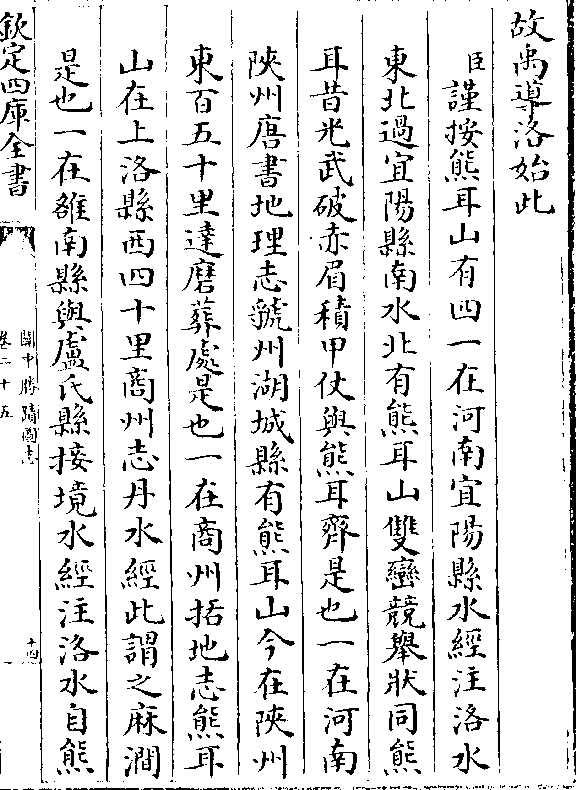 故禹導洛始此
臣謹按熊耳山有四一在河南宜陽縣水經注洛水
東北過宜陽縣南水北有熊耳山雙巒競舉狀同熊
耳昔光武破赤眉積甲仗與熊耳齊是也一在河南
陜州唐書地理志虢州湖城縣有熊耳山今在陜州
東百五十里達磨葬處是也一在商州括地志熊耳
山在上洛縣西四十里商州志丹水經此謂之麻澗
是也一在雒南縣與盧氏縣接境水經注洛水自熊
欽定四庫全書
關中勝蹟圖志
卷二十五
十四